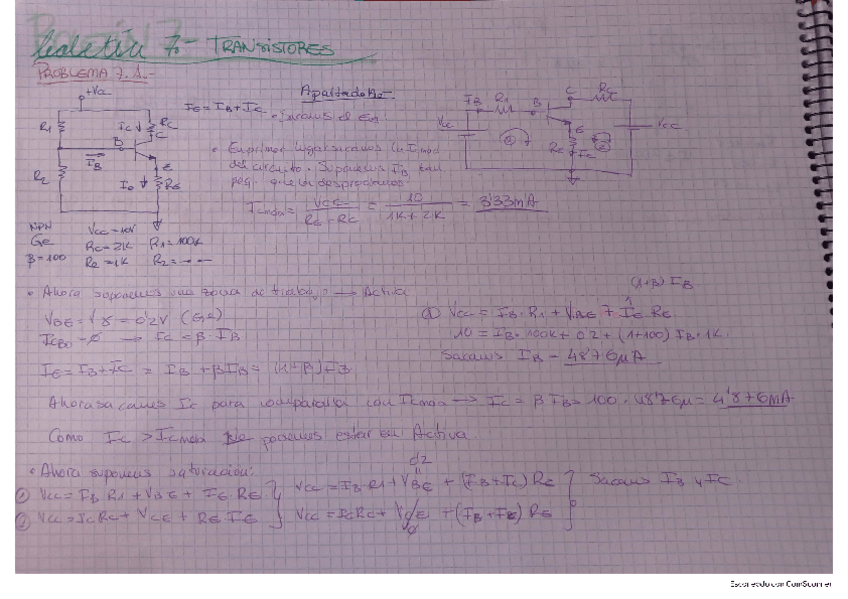 Boletín 7.- TRANSISTORES
PROBLEMA 7.1.-
+Vcc
R1
IC
RC
B
C
IB
E
R2
RE
IE = IB + IC
Apartado
• Sacamos el
IB R1 B C RC
Vcc
E
Vcc
• Exprimo
del circuito. Suponemos IB tan
peq. que la despreciamos
ICmáx = Vcc / RE + RC = 10 / 1K + 2K = 3'33mA
NPN
Ge
β = 100
Vcc = 10V
RC = 2K R1 = 100K
RE = 1K R2 = — —
• Ahora suponemos una zona de trabajo → Activa
VBE = Vγ = 0'2V (Ge)
ICBO = 0 → IC = β · IB
IE = IB + IC = IB + βIB = (1+β) IB
(1+β) IB
① Vcc = IB · R1 + VBE + IE RE
10 = IB · 100K + 0'2 + (1+100) IB · 1K
Sacamos IB = 48'76μA
Ahora sacamos IC para compararla con ICmáx → IC = β IB = 100 · 48'76μ = 4'876mA
Como IC > ICmáx No podemos estar en Activa
• Ahora suponemos saturación:
0'2
① Vcc = IB R1 + VBE + IE RE
Vcc = IB R1 + VBE + (IB + IC) RE
Sacamos IB y IC
② Vcc = IC RC + VCE + RE IE
Vcc = IC RC + VCE + (IB + IC) RE
0
Escaneado con CamScanner